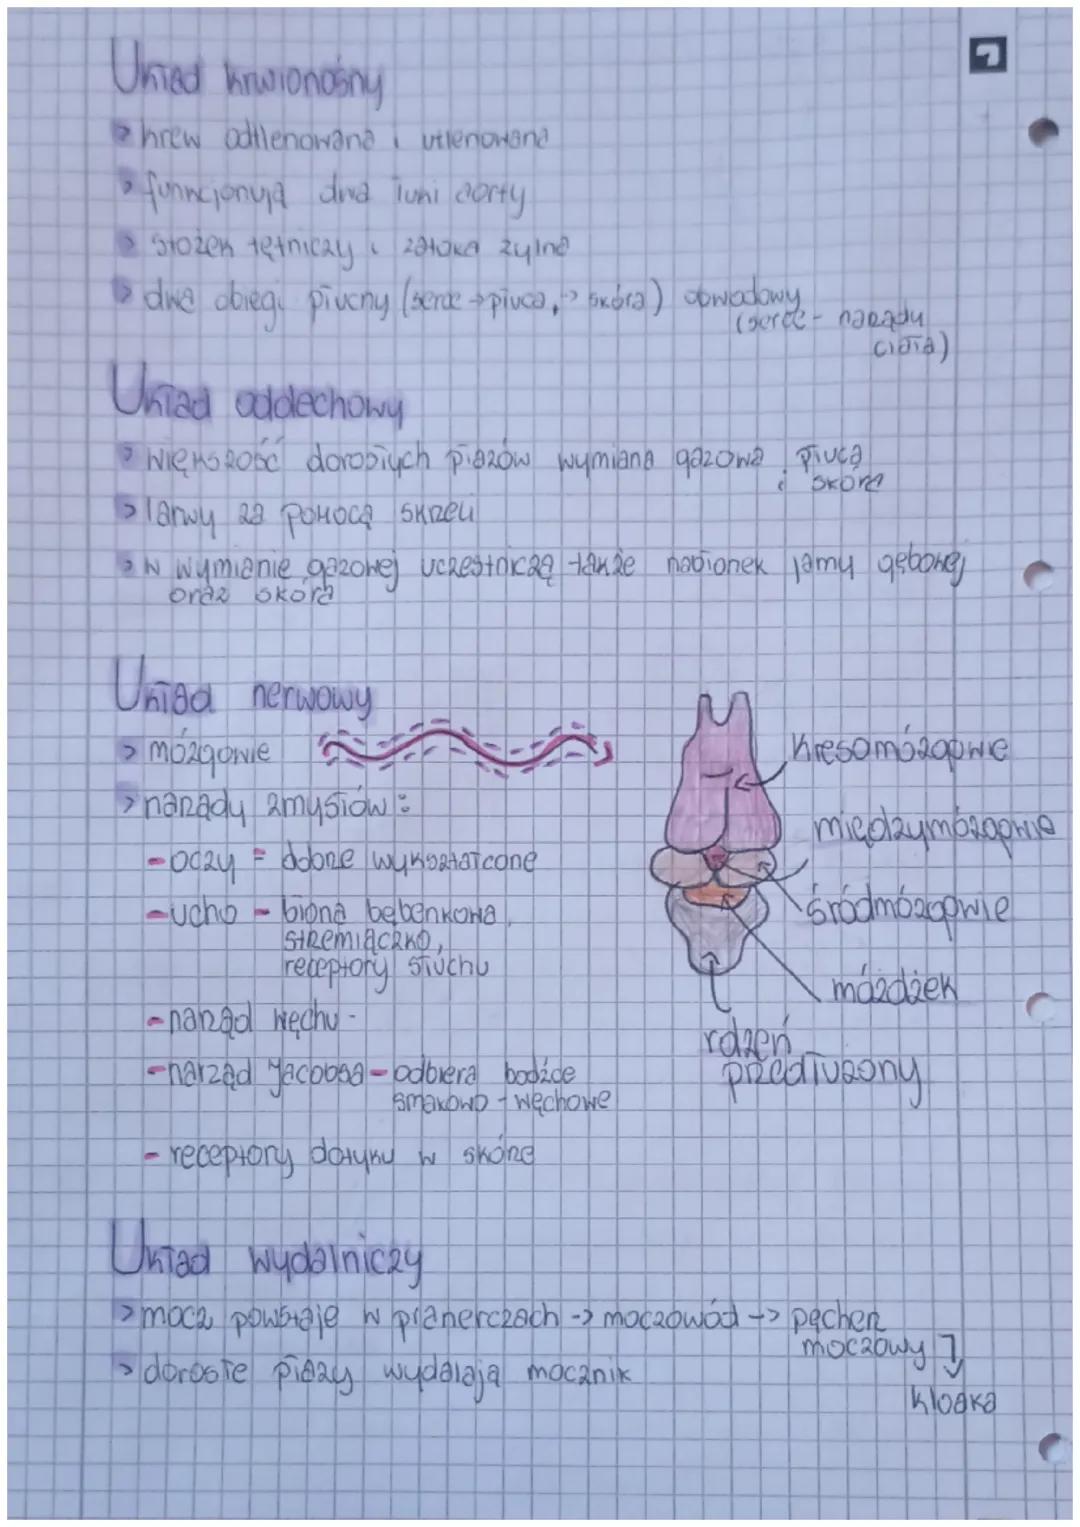 Układ krwionośny
> krew odtlenowana i utlenowana
> funkcjonują dwa łuki aorty
> stożek tętniczy i zatoka żylna
> dwa obiegi płucny (serce → płuca, → skóra) obwodowy
(serce - narządy
ciała)
Układ oddechowy
> większość dorosłych płazów wymiana gazowa płuca
i skóra
> larwy za pomocą skrzeli
> w wymianie gazowej uczestniczą także nabłonek jamy gębowej
oraz skóra
Układ nerwowy
> mózgowie
> narządy zmysłów:
- oczy = dobrze wykształcone
- ucho - błona bębenkowa,
strzemiączko,
receptory słuchu
- narząd węchu -
- narząd Jacobsa - odbiera bodźce
smakowo - węchowe
- receptory dotyku w skórze
kresomózgowie
międzymózgowie
śródmózgowie
móżdżek
rdzeń
przedłużony
Układ wydalniczy
> mocz powstaje w pranerczach -> moczowód -> pęcherz
moczowy
> dorosłe płazy wydalają mocznik
kloaka